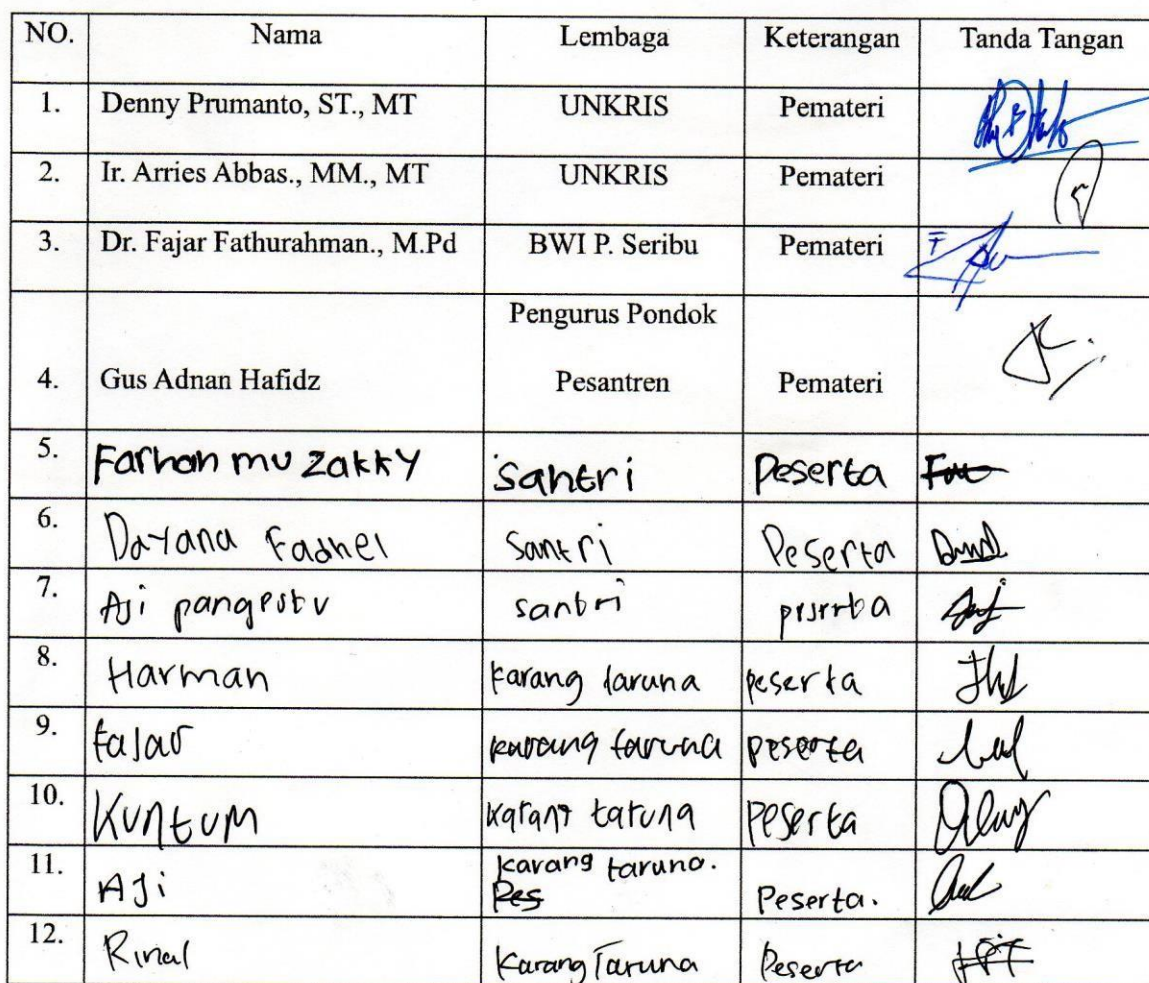 NO. Nama Lembaga Keterangan Tanda Tangan
1. Denny Prumanto, ST., MT UNKRIS Pemateri
2. Ir. Arries Abbas., MM., MT UNKRIS Pemateri
3. Dr. Fajar Fathurahman., M.Pd BWI P. Seribu Pemateri
Pengurus Pondok
4. Gus Adnan Hafidz Pesantren Pemateri
5. Farhan mu zakky santri Peserta
6. Dayana Fadhel santri Peserta
7. Aji pangestu santri peserta
8. Harman karang taruna peserta
9. fajar karang taruna peserta
10. Kuntum karang taruna Peserta
11. Aji karang taruna. Peserta.
Pes
12. Rinal Karang Taruna Peserta